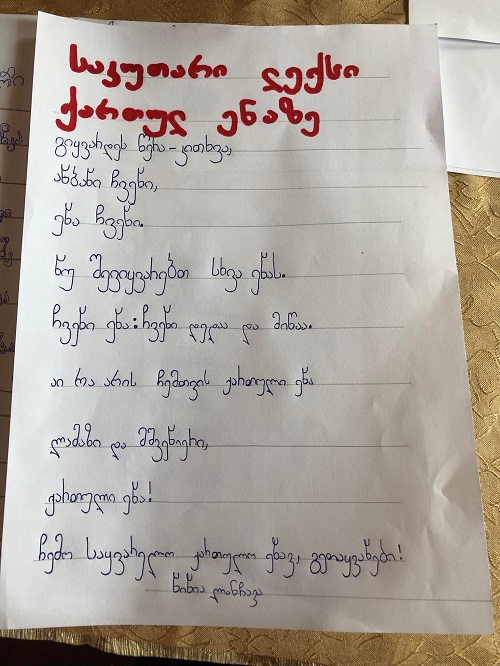 საკუთარი ლექსი
ქართულ ენაზე
გიყვარდეს წერა-კითხვა,
ანბანი ჩვენი,
ენა ჩვენი.
ნუ შევიყვარებთ სხვა ენას.
ჩვენი ენა: ჩვენი დედაა და მიწაა.
აი რა არის ჩემთვის ქართული ენა
ლამაზი და მშვენიერი,
ქართული ენა!
ჩემო საყვარელო ქართულო ენავ, გეთაყვანები!
ნინია ლანჩავა